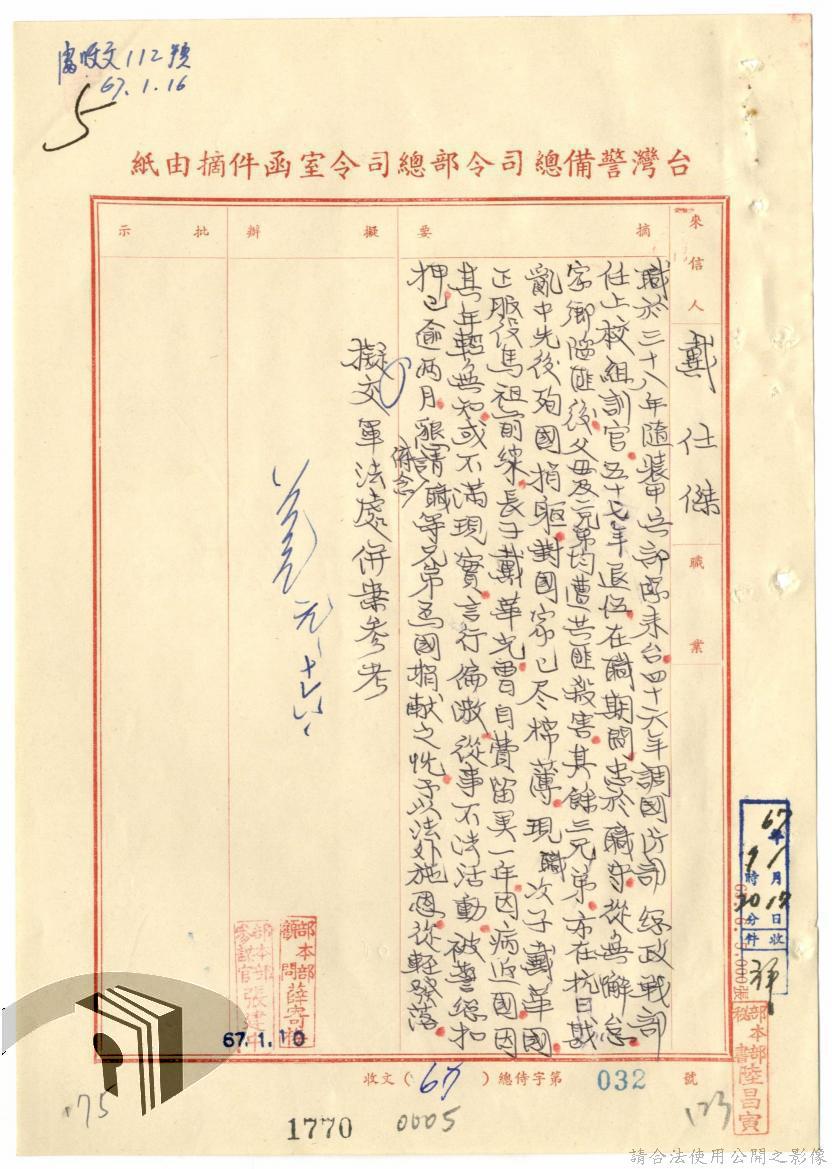 收文112號
67.1.16
5
台灣警備總司令部總司令室函件摘由紙
來信人
戴任傑
職業
摘要
職於三十八年隨裝甲兵部隊來台四十六年調國防部總政戰部
任上校組訓官五十七年退伍在職期間忠於職守從無懈怠
家鄉陷匪後父母及兄弟均遭共匪殺害其餘三兄弟亦在抗日戡
亂中先後殉國捐軀對國家已尽棉薄現職次子戴華國
正服役馬祖前線長子戴華光曾自費留美一年因病返國因
其年輕無知或不滿現實言行偏激從事不法活動被警總扣
押已逾兩月懇請俯念職等兄弟為國捐獻之忱予以法外施恩從輕發落
擬辦
擬交軍法處併案參考
元、十六、
批示
部本部顧問薛寄梅
部本部參謀官張建中
67.1.10
67年1月17日收
9時20分件
部本部秘書陸昌寅
收文(67)總侍字第032號
175
1770
0005
173
請合法使用公開之影像